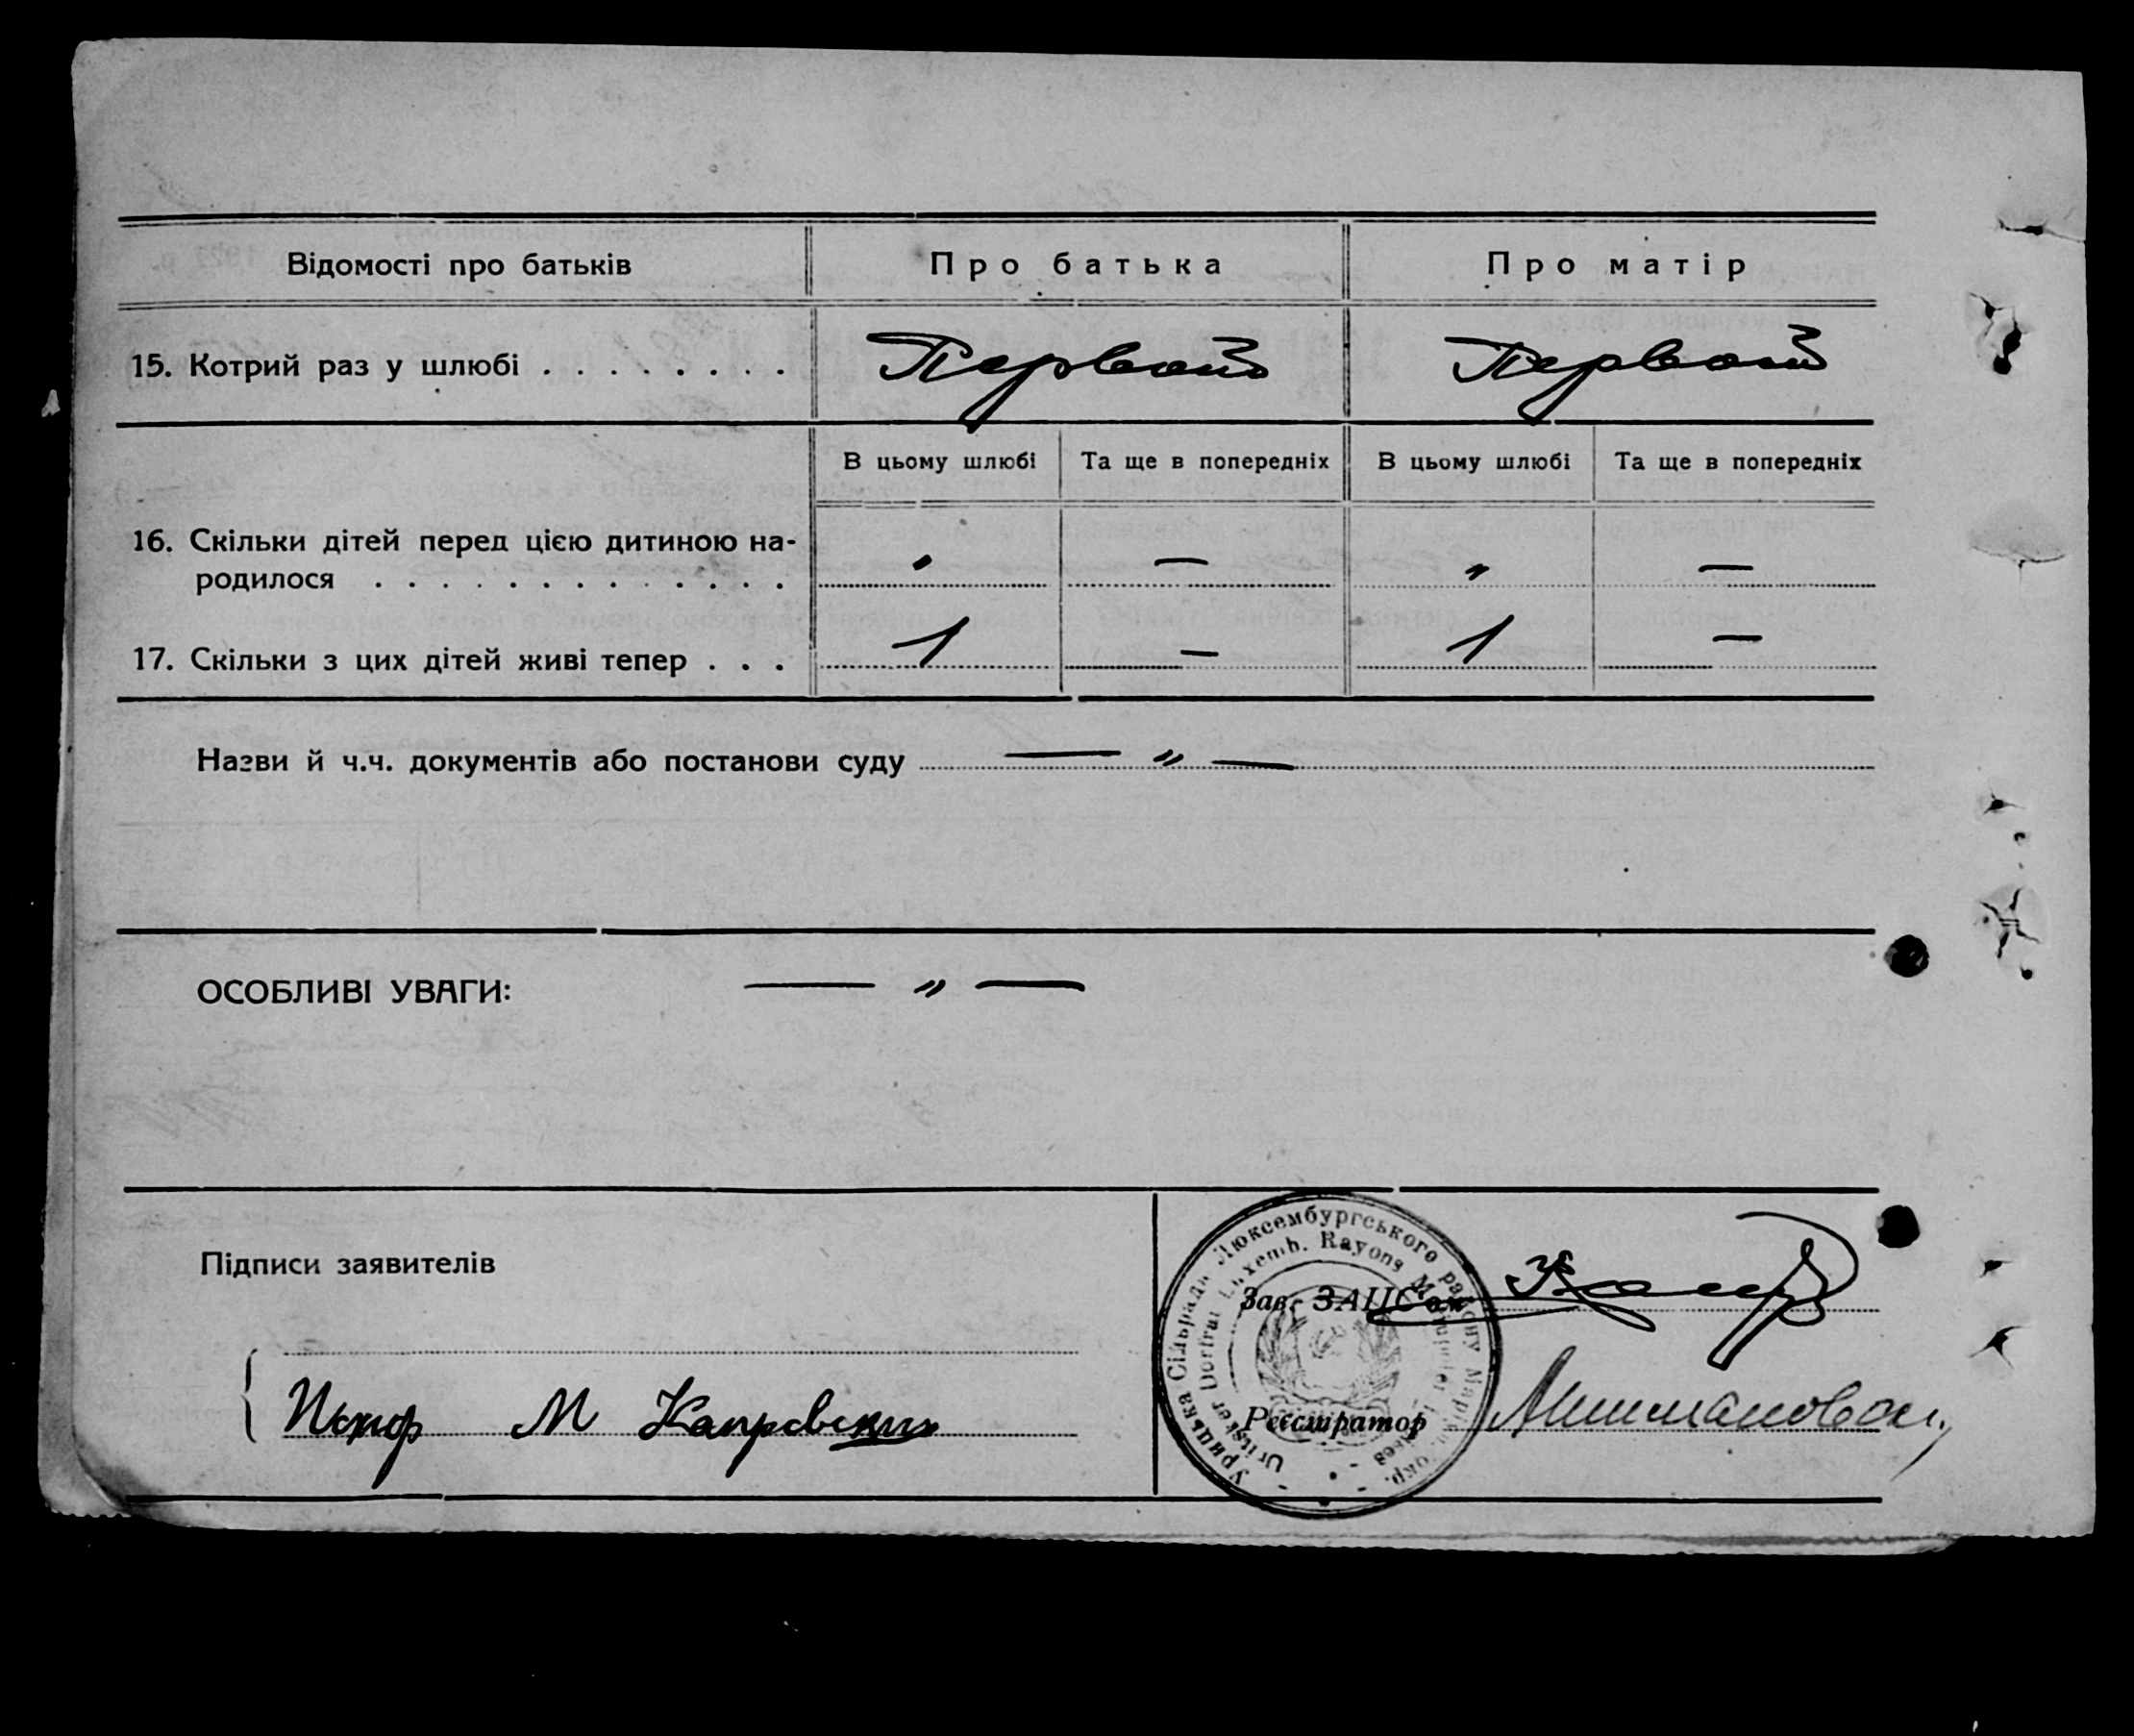 Відомості про батьків Про батька Про матір
15. Котрий раз у шлюбі . . . . . . . . Первой Первой
В цьому шлюбі Та ще в попередніх В цьому шлюбі Та ще в попередніх
16. Скільки дітей перед цією дитиною на-
родилося . . . . . . . . . . . . . „ — „ —
17. Скільки з цих дітей живі тепер . . . 1 — 1 —
Назви й ч.ч. документів або постанови суду — „ —
ОСОБЛИВІ УВАГИ: — „ —
Підписи заявителів
Зав. ЗАЦСом
М
Реєстратор
Урицька Сільрада Люксембургського району Маріюп. окр.
Uritsker Dorfrat Luxemb. Rayons